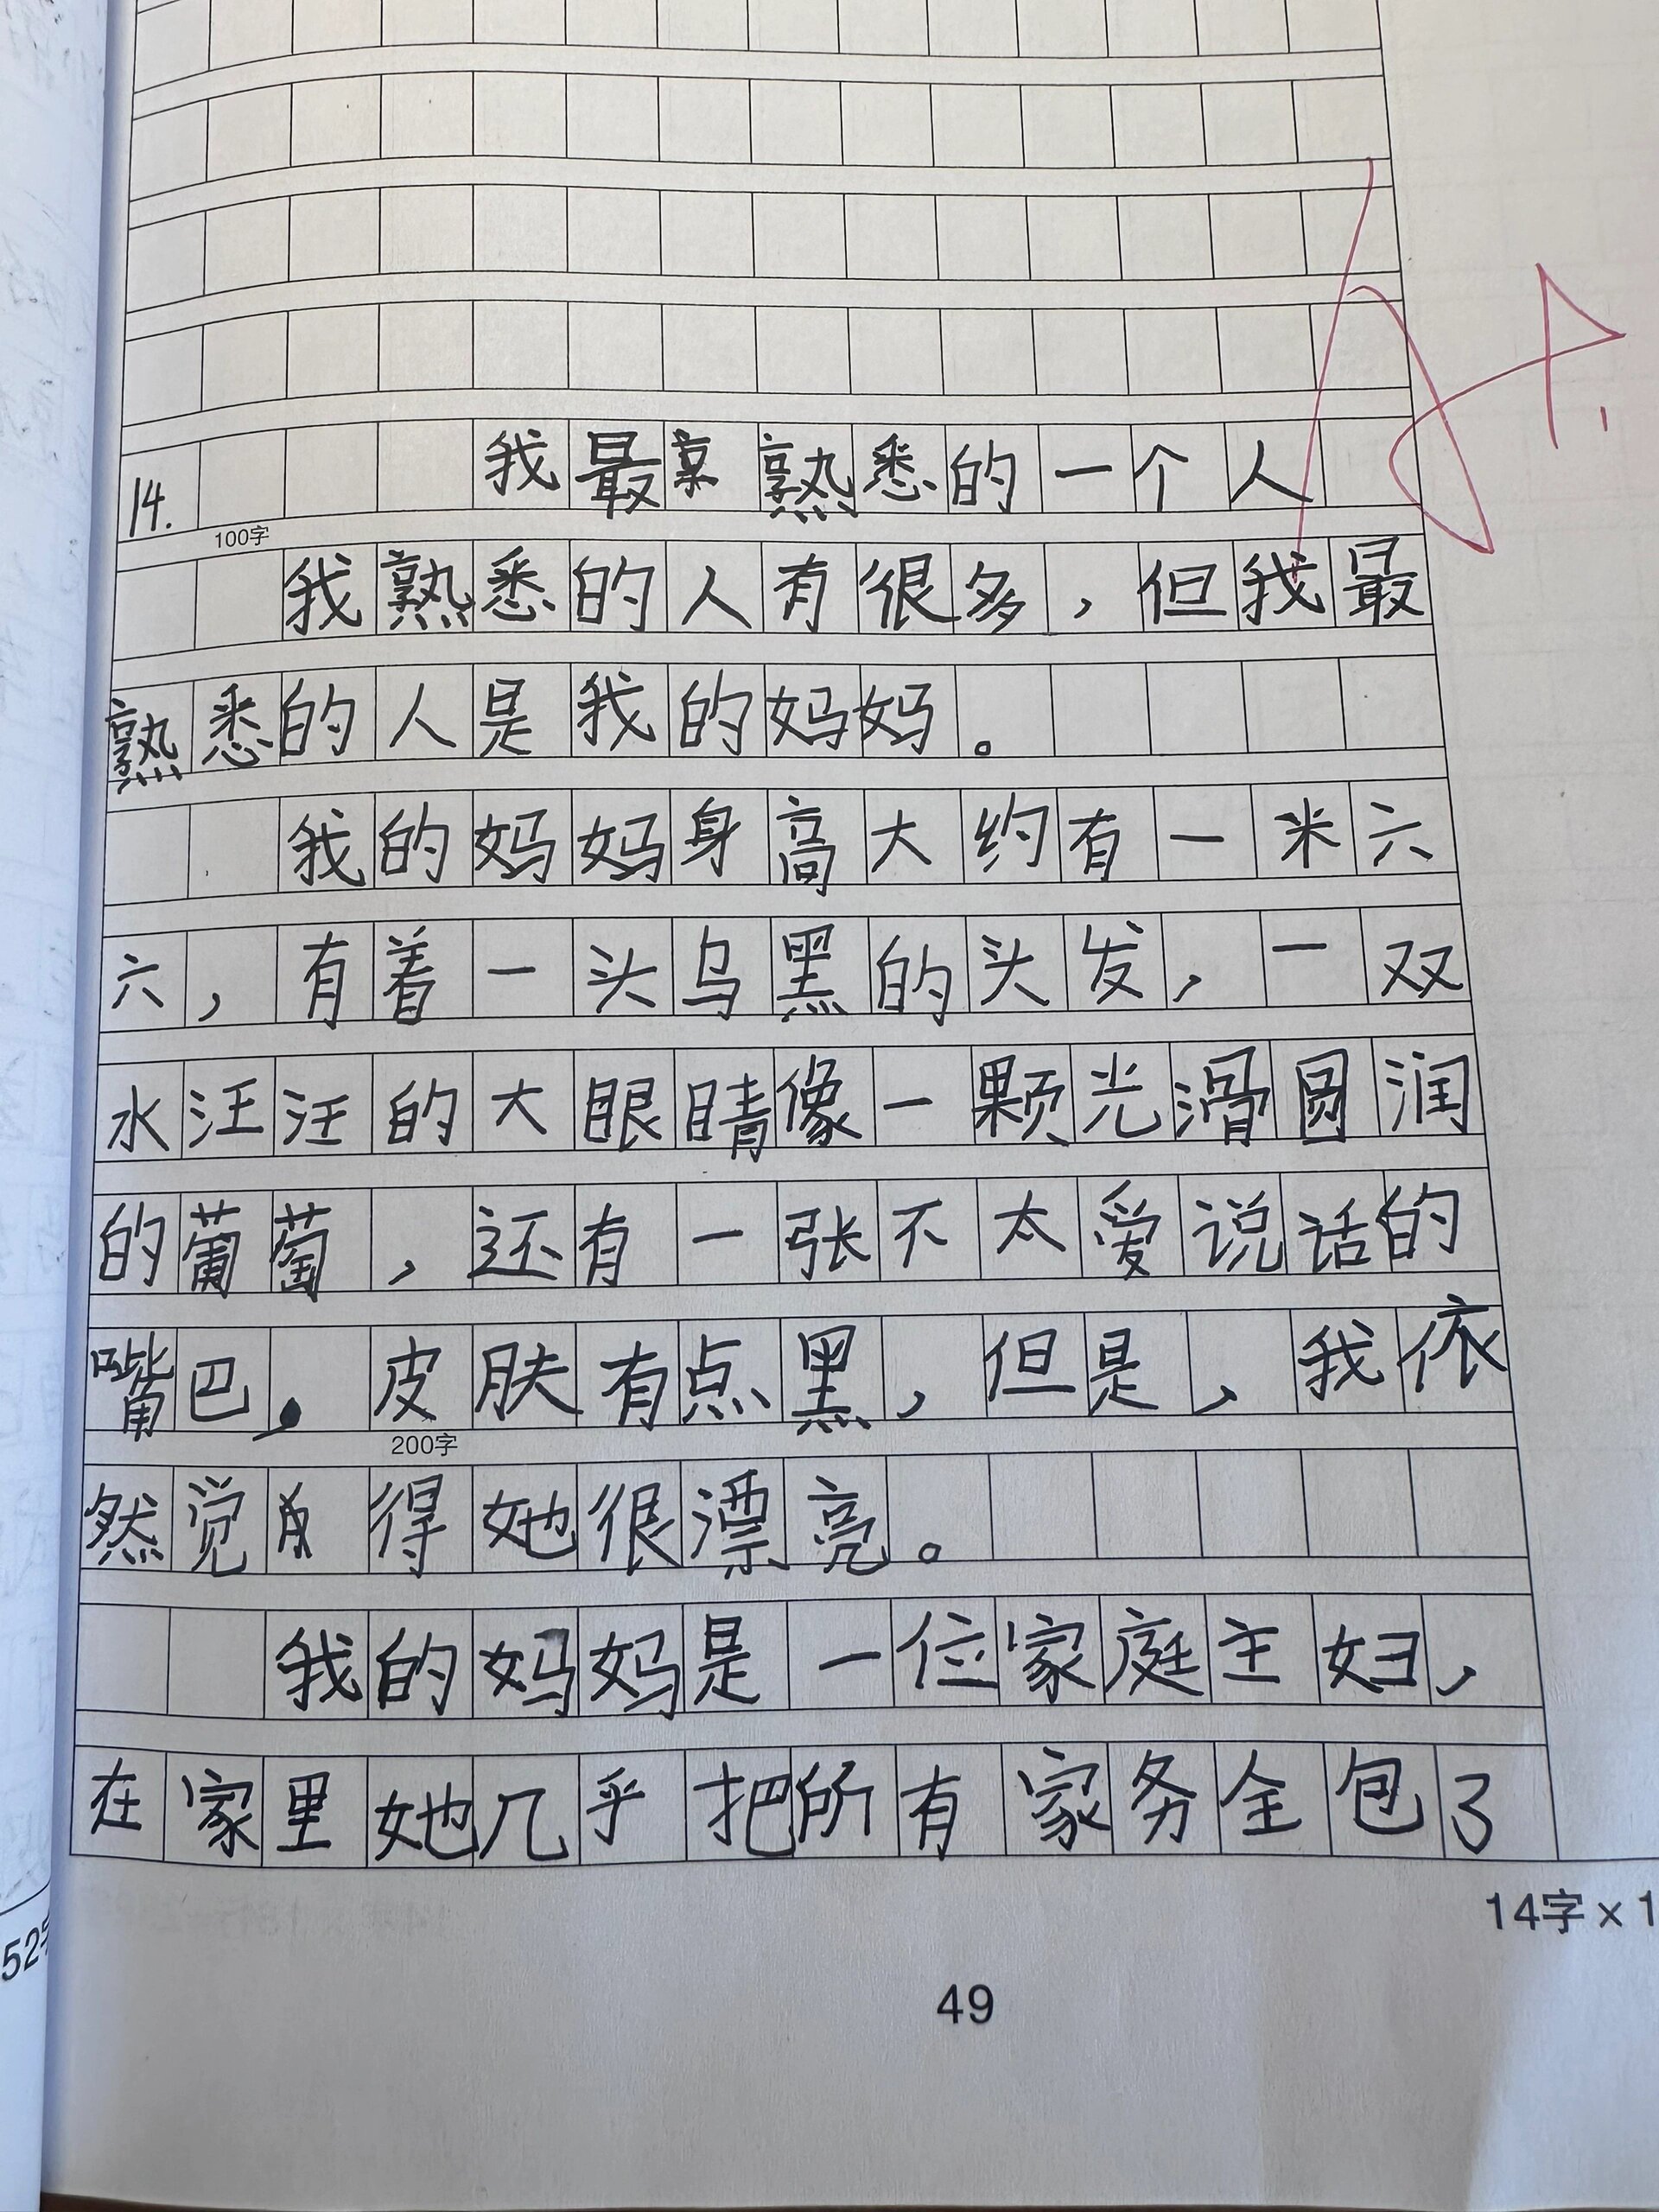 我最熟悉的一个人
14.
100字
我熟悉的人有很多，但我最
熟悉的人是我的妈妈。
我的妈妈身高大约有一米六
六，有着一头乌黑的头发，一双
水汪汪的大眼睛像一颗光滑圆润
的葡萄，还有一张不太爱说话的
嘴巴。皮肤有点黑，但是，我依
200字
然觉得她很漂亮。
我的妈妈是一位家庭主妇，
在家里她几乎把所有家务全包了
14字×1
52
49